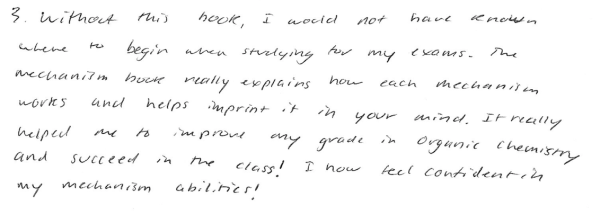 3. Without this book, I would not have known
where to begin when studying for my exams. The
mechanism book really explains how each mechanism
works and helps imprint it in your mind. It really
helped me to improve my grade in Organic Chemistry
and succeed in the class! I now feel confident in
my mechanism abilities!